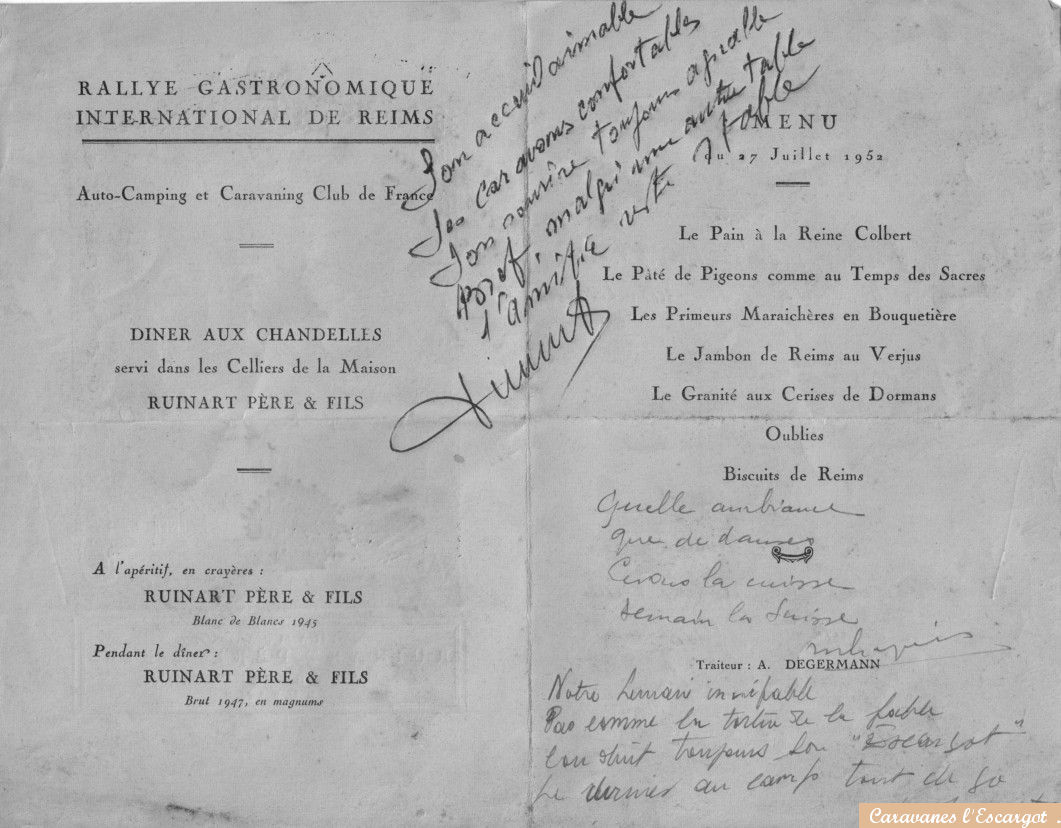 RALLYE GASTRONOMIQUE
INTERNATIONAL DE REIMS
Auto-Camping et Caravaning Club de France
DINER AUX CHANDELLES
servi dans les Celliers de la Maison
RUINART PÈRE & FILS
A l'apéritif, en crayères :
RUINART PÈRE & FILS
Blanc de Blancs 1945
Pendant le dîner :
RUINART PÈRE & FILS
Brut 1947, en magnums
Son accueil aimable
Ses caravanes confortables
Son sourire toujours agréable
Bref, malgré une autre table
l'amitié reste stable
MENU
du 27 Juillet 1952
Le Pain à la Reine Colbert
Le Pâté de Pigeons comme au Temps des Sacres
Les Primeurs Maraichères en Bouquetière
Le Jambon de Reims au Verjus
Le Granité aux Cerises de Dormans
Oublies
Biscuits de Reims
Quelle ambiance
que de danses
la cuisse
demain la Suisse
Traiteur : A. DEGERMANN
Notre
Pas comme la tortue de la fable
Conduit toujours son "Escargot"
Le dernier au camp tout de go
Caravanes l'Escargot